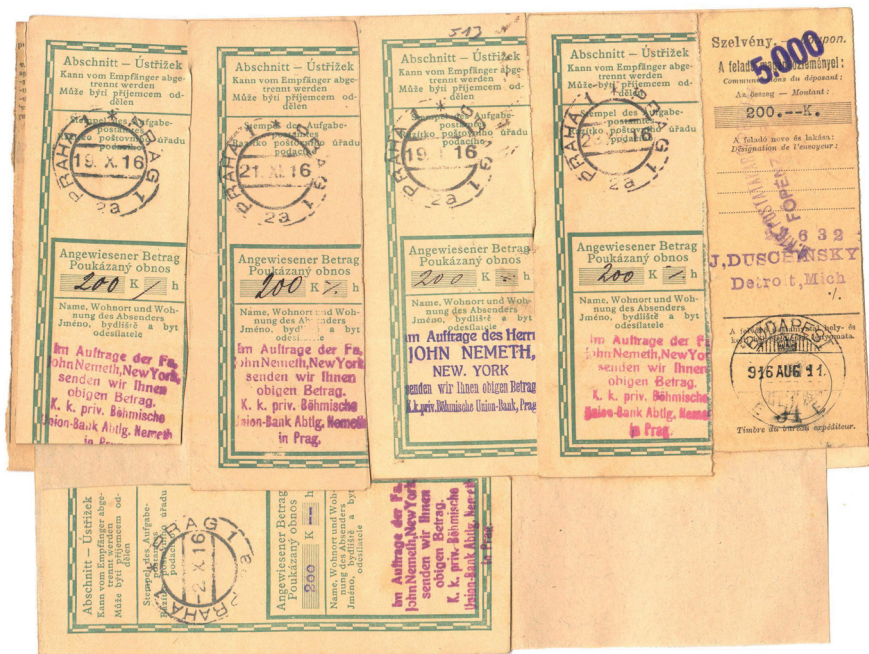 Abschnitt – Ústřižek
Kann vom Empfänger abge-
trennt werden
Může býti příjemcem od-
dělen
Stempel des Aufgabe-
postamtes
Razítko poštovního úřadu
podacího
PRAHA 1 PRAG 1
19. X. 16
2a
Angewiesener Betrag
Poukázaný obnos
200 K h
Name, Wohnort und Woh-
nung des Absenders
Jméno, bydliště a byt
odesílatele
Im Auftrage der Fa.
John Nemeth, New York
senden wir Ihnen
obigen Betrag.
K. k. priv. Böhmische
Union-Bank Abtlg. Nemeth
in Prag.
Abschnitt – Ústřižek
Kann vom Empfänger abge-
trennt werden
Může býti příjemcem od-
dělen
Stempel des Aufgabe-
postamtes
Razítko poštovního úřadu
podacího
PRAHA 1 PRAG 1
21. XI. 16
2a
Angewiesener Betrag
Poukázaný obnos
200 K h
Name, Wohnort und Woh-
nung des Absenders
Jméno, bydliště a byt
odesílatele
Im Auftrage der Fa.
John Nemeth, New York
senden wir Ihnen
obigen Betrag.
K. k. priv. Böhmische
Union-Bank Abtlg. Nemeth
in Prag.
513
Abschnitt – Ústřižek
Kann vom Empfänger abge-
trennt werden
Může býti příjemcem od-
dělen
Stempel des Aufgabe-
postamtes
Razítko poštovního úřadu
podacího
PRAHA 1 PRAG 1
19. 16
2a
Angewiesener Betrag
Poukázaný obnos
200 K h
Name, Wohnort und Woh-
nung des Absenders
Jméno, bydliště a byt
odesílatele
Im Auftrage des Herrn
JOHN NEMETH,
NEW. YORK
senden wir Ihnen obigen Betrag
K.k.priv.Böhmische Union-Bank, Prag
Abschnitt – Ústřižek
Kann vom Empfänger abge-
trennt werden
Může býti příjemcem od-
dělen
Stempel des Aufgabe-
postamtes
Razítko poštovního úřadu
podacího
PRAHA 1 PRAG 1
16
2a
Angewiesener Betrag
Poukázaný obnos
200 K h
Name, Wohnort und Woh-
nung des Absenders
Jméno, bydliště a byt
odesílatele
Im Auftrage der Fa.
John Nemeth, New York
senden wir Ihnen
obigen Betrag.
K. k. priv. Böhmische
Union-Bank Abtlg. Nemeth
in Prag.
Szelvény. – Coupon.
5.000
A feladó közleményei:
Communications du déposant:
Az összeg – Montant:
200.--K.
A feladó neve és lakása:
Désignation de l'envoyeur:
632
J. DUSCHINSKY
Detroit, Mich
BUDAPEST
916 AUG 11
Timbre du bureau expéditeur.
Abschnitt – Ústřižek
Kann vom Empfänger abge-
trennt werden
Může býti příjemcem od-
dělen
Stempel des Aufgabe-
postamtes
Razítko poštovního úřadu
podacího
PRAHA 1 PRAG 1
-2. X. 16
Angewiesener Betrag
Poukázaný obnos
200 K -- h
Name, Wohnort und Woh-
nung des Absenders
Jméno, bydliště a byt
odesílatele
Im Auftrage der Fa.
John Nemeth, New York
senden wir Ihnen
obigen Betrag.
K. k. priv. Böhmische
Union-Bank Abtlg. Nemeth
in Prag.